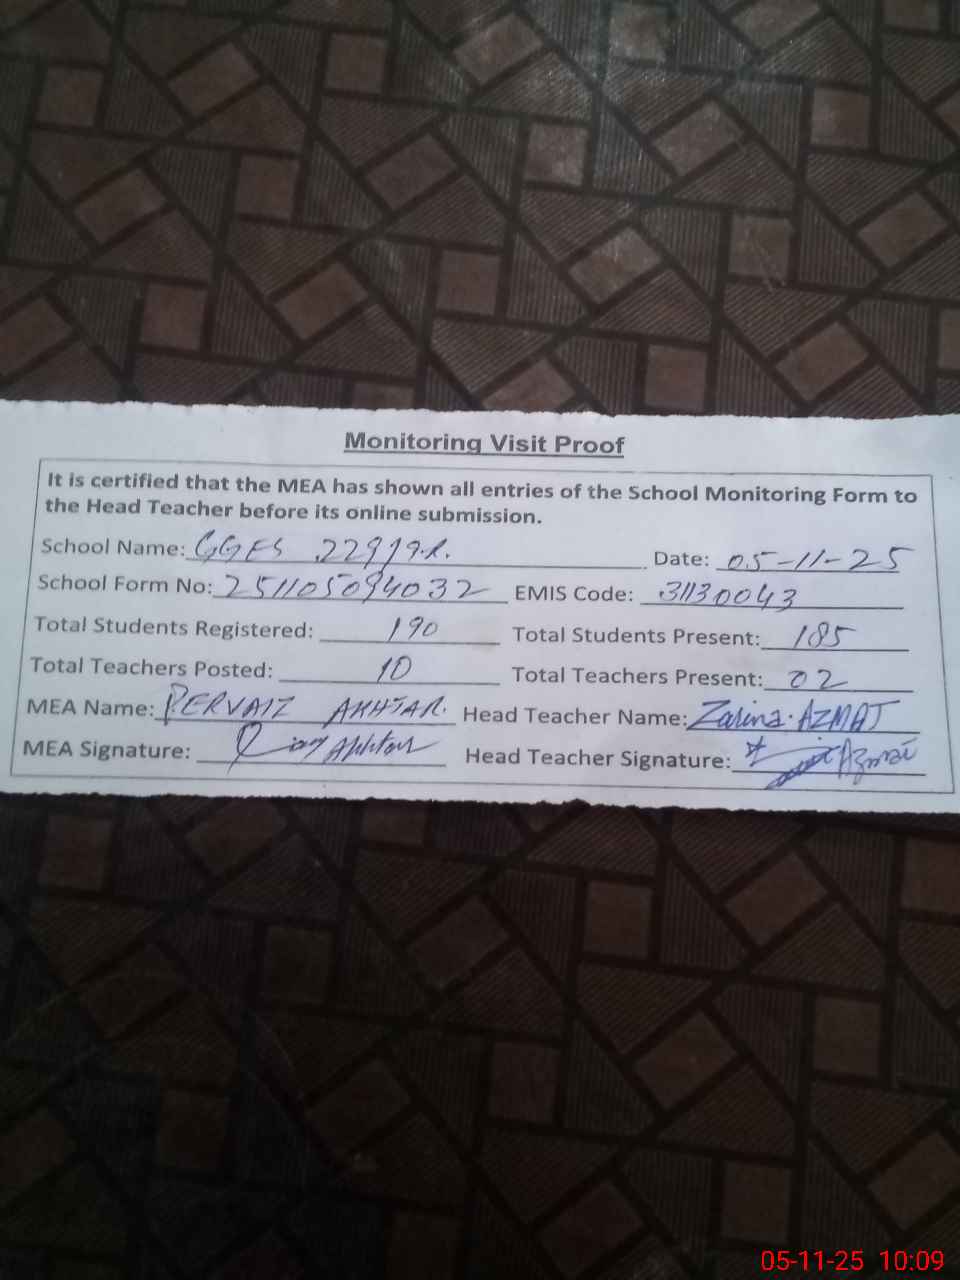 Monitoring Visit Proof
It is certified that the MEA has shown all entries of the School Monitoring Form to
the Head Teacher before its online submission.
School Name: GGES 229/9.R. Date: 05-11-25
School Form No: 251105094032 EMIS Code: 31130043
Total Students Registered: 190 Total Students Present: 185
Total Teachers Posted: 10 Total Teachers Present: 02
MEA Name: PERVAIZ AKHTAR. Head Teacher Name: Zarina. AZMAT
MEA Signature: Akhtar Head Teacher Signature: Azmat
05-11-25 10:09